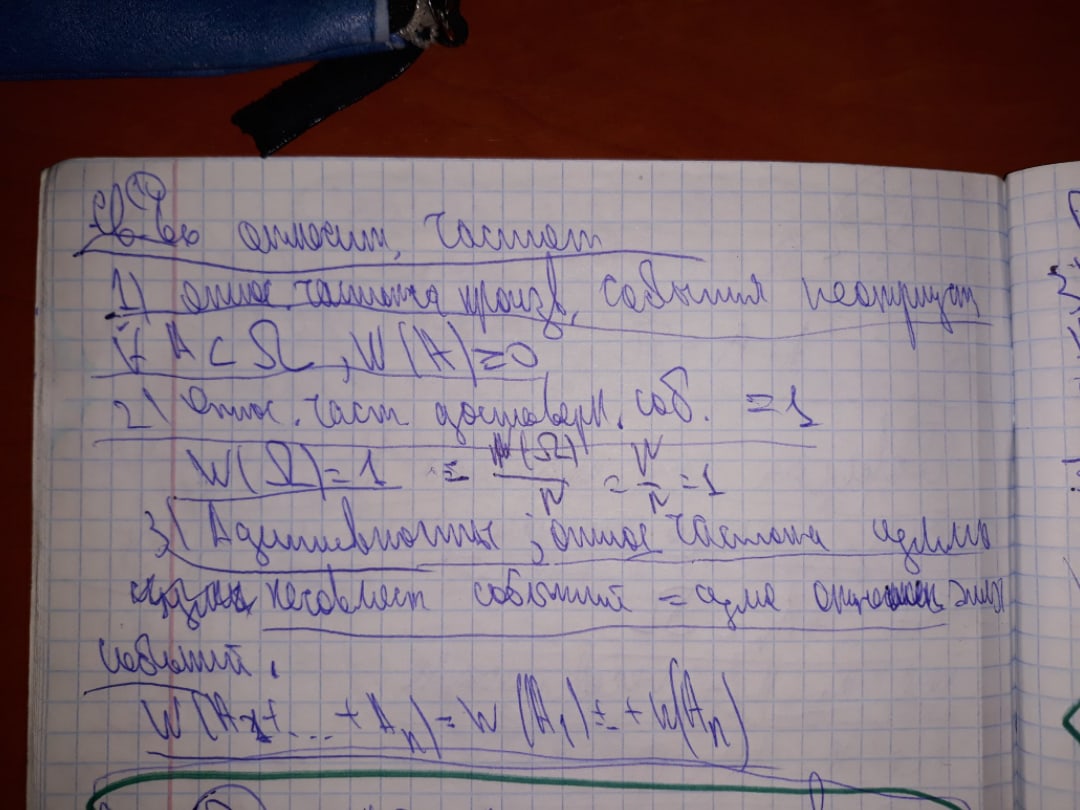 Св-во относит. частот
1) относ. частота произв. события неотрицат
∀ A ⊂ Ω, W(A) ≥ 0
2) относ. част достоверн. соб. = 1
W(Ω) = 1 = n(Ω)/n = n/n = 1
3) Аддитивность; относ частота суммы
несовмест событий = сумме этих
событий.
W(A₁+ ... + Aₙ) = W(A₁)+ + W(Aₙ)